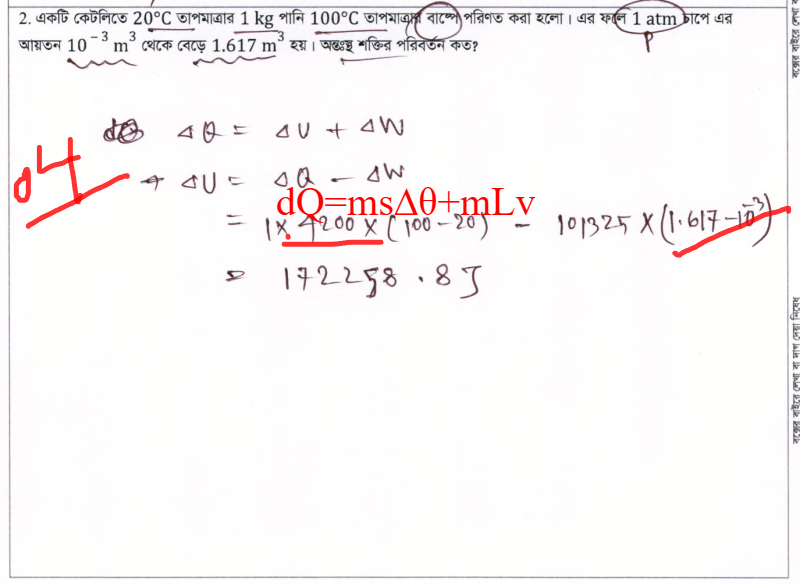 2. একটি কেটলিতে 20°C তাপমাত্রার 1 kg পানি 100°C তাপমাত্রার বাষ্পে পরিণত করা হলো। এর ফলে 1 atm চাপে এর
আয়তন 10⁻³ m³ থেকে বেড়ে 1.617 m³ হয়। অন্তঃস্থ শক্তির পরিবর্তন কত?
P
ΔQ = ΔU + ΔW
04
ΔU = ΔQ - ΔW
dQ=msΔθ+mLv
= 1 × 4200 × (100-20) - 101325 × (1.617-10⁻³)
= 172258.8 J
বক্সের বাইরে লেখা বা দাগ দেয়া নিষেধ